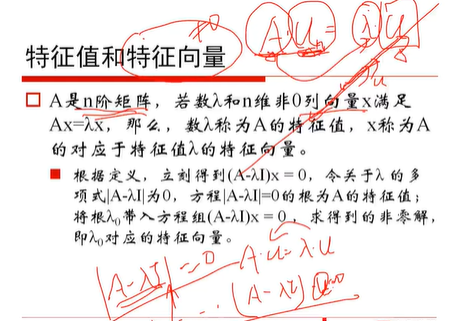 ≠0
A·u = λu
特征值和特征向量
A是n阶矩阵，若数λ和n维非0列向量x满足
Ax=λx，那么，数λ称为A的特征值，x称为A
的对应于特征值λ的特征向量。
根据定义，立刻得到(A-λI)x = 0，令关于λ的多
项式|A-λI|为0，方程|A-λI|=0的根为A的特征值；
将根λ₀带入方程组(A-λI)x = 0，求得到的非零解，
即λ₀对应的特征向量。
|A-λI| = 0
A·u=λ·u